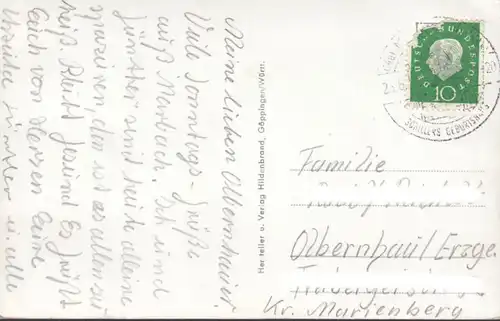 Meine lieben Olbernhauer!
Viele Sonntags-Grüße
auß Marbach. Ich und
Günther sind heute alleine
spazieren, den ist es allen zu
heiß. Bleibt gesund Es grüßt
Euch von Herzen Eure
Günther u. alle
Hersteller u. Verlag Hildenbrand, Göppingen/Württ.
DEUTSCHE BUNDESPOST
10
SCHILLERS GEBURTSHAUS
Familie
Olbernhau/Erzge
Kr. Marienberg